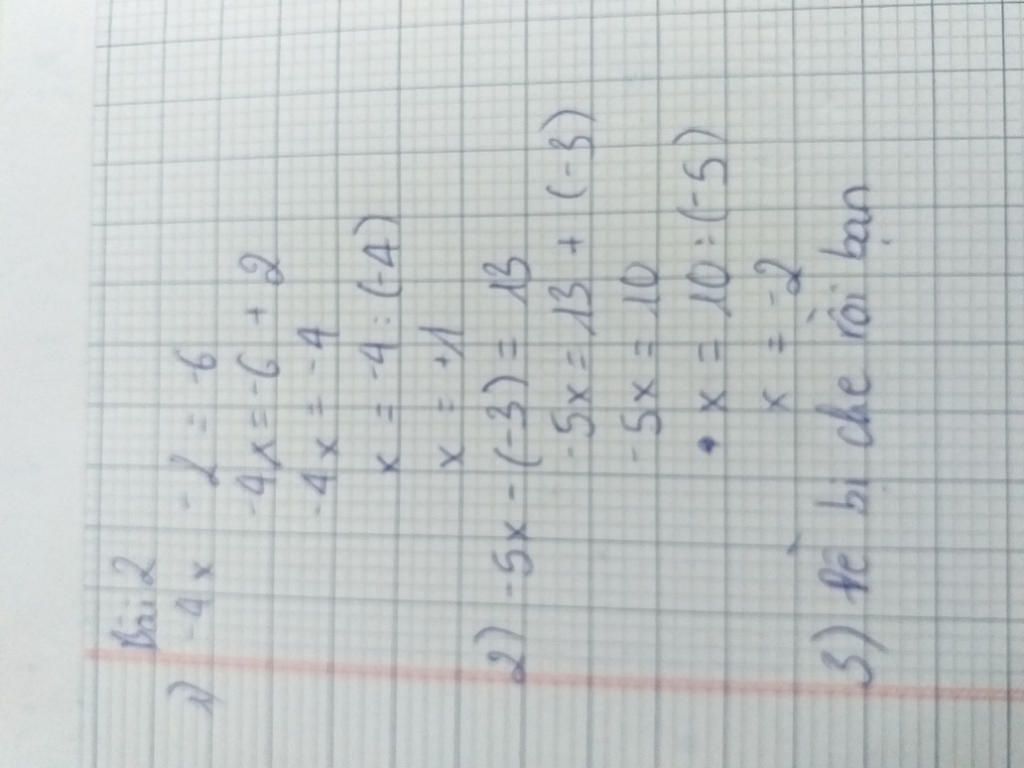 Bài 2
1) -4x - 2 = -6
-4x = -6 + 2
-4x = -4
x = -4 : (-4)
x = +1
2) -5x - (-3) = 13
-5x = 13 + (-3)
-5x = 10
x = 10 : (-5)
x = -2
3) Đề bị che rồi bạn